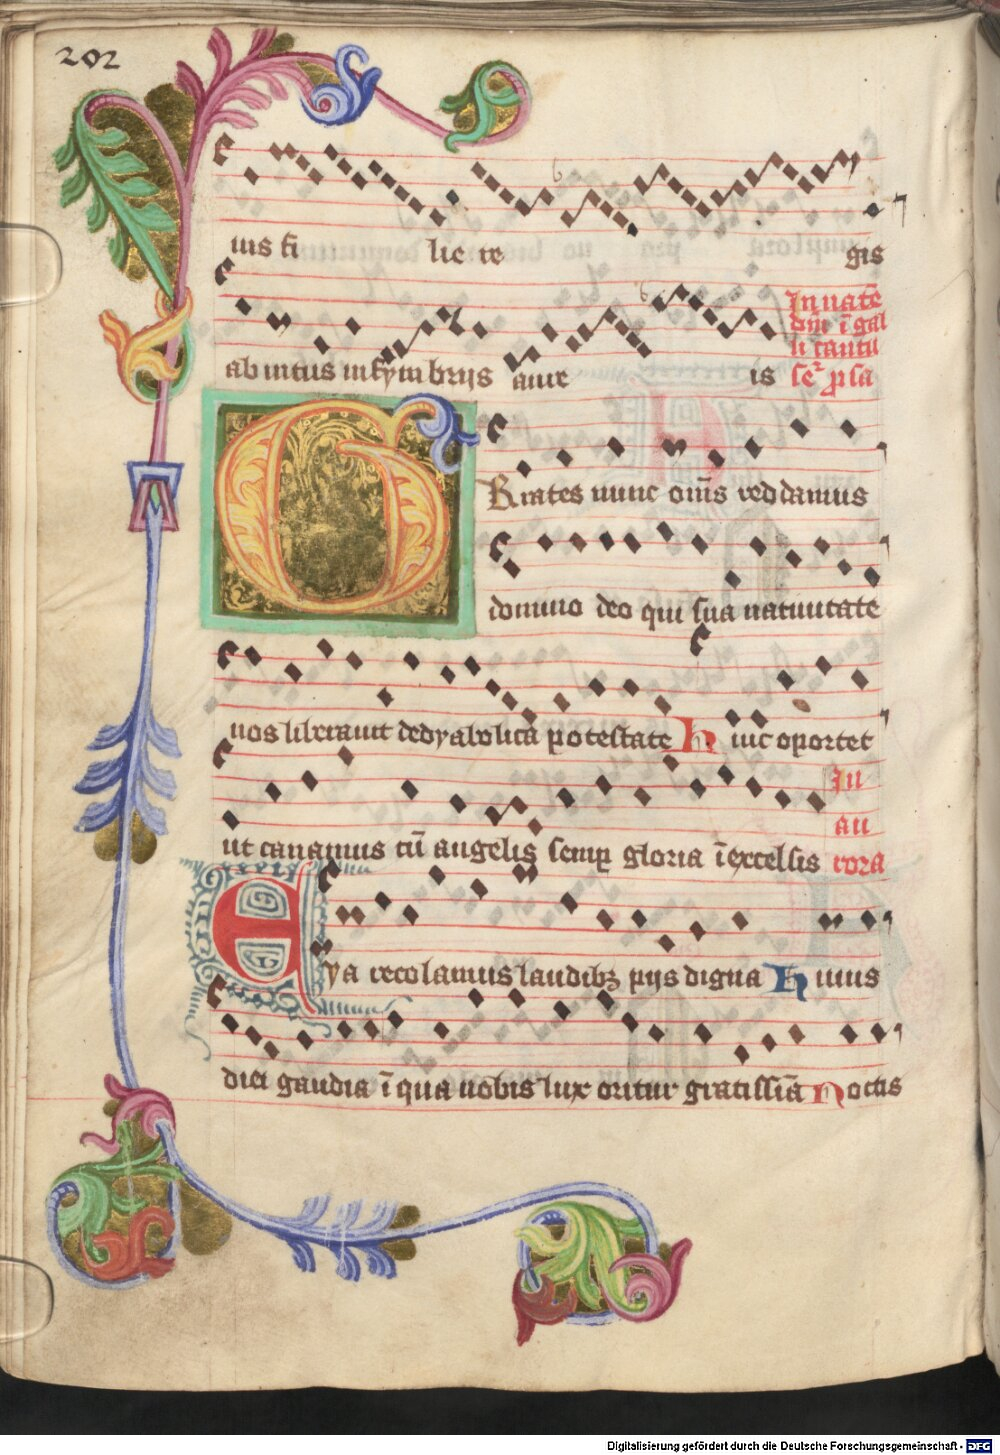 202
ius fi lie re gis
ab intus in fymbrijs aure is
In nate
dm̄ ī gal
li cantu
seꝛ ꝓsa
GRates nunc om̄s reddamus
domino deo qui sua natiuitate
nos liberauit de dyabolica potestate Huic oportet
ut canamus cū angelis semꝑ gloria ī excelsis
In
au
rora
Eya recolamus laudibꝫ pijs digna Huius
diei gaudia ī qua nobis lux oritur gratissīa Noctis
Digitalisierung gefördert durch die Deutsche Forschungsgemeinschaft - DFG